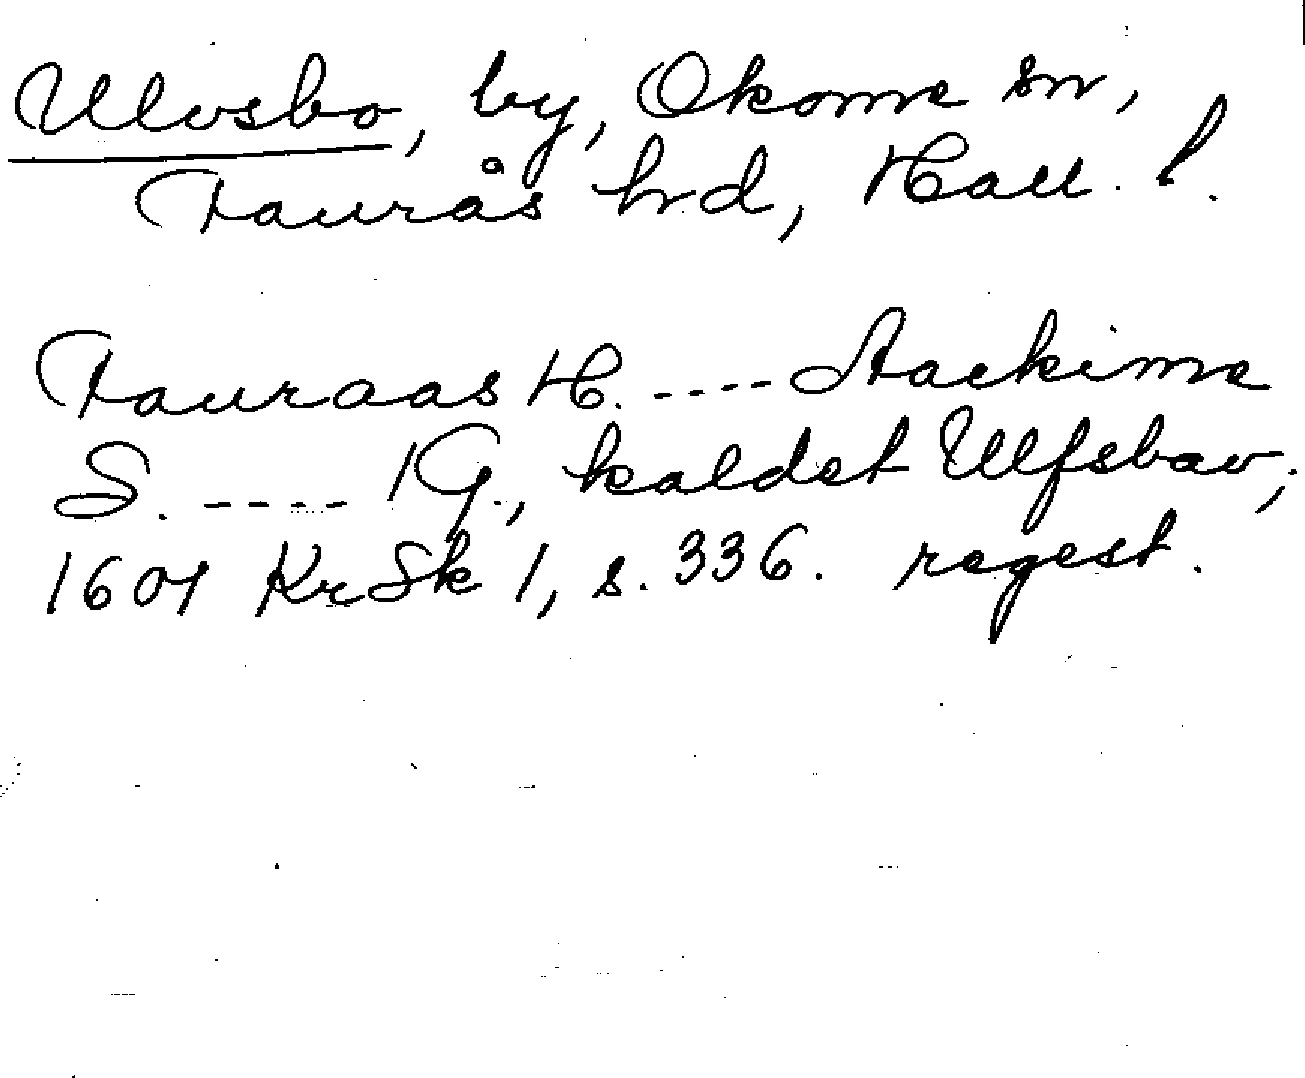 Ulvsbo, by, Okome sn,
Faurås hrd, Hall. l.
Fauraas H. ---- Aackime
S. ---- 1 G., kaldet Ulfsbav,
1607 KrSk 1, s. 336. regest.